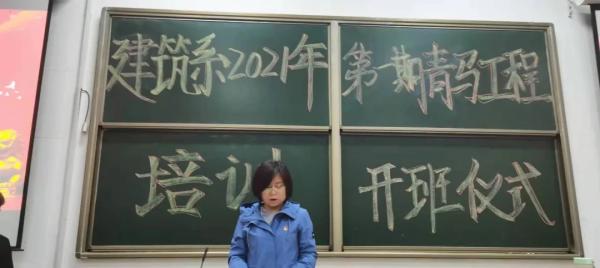 建筑系2021年第一期青马工程
培训开班仪式